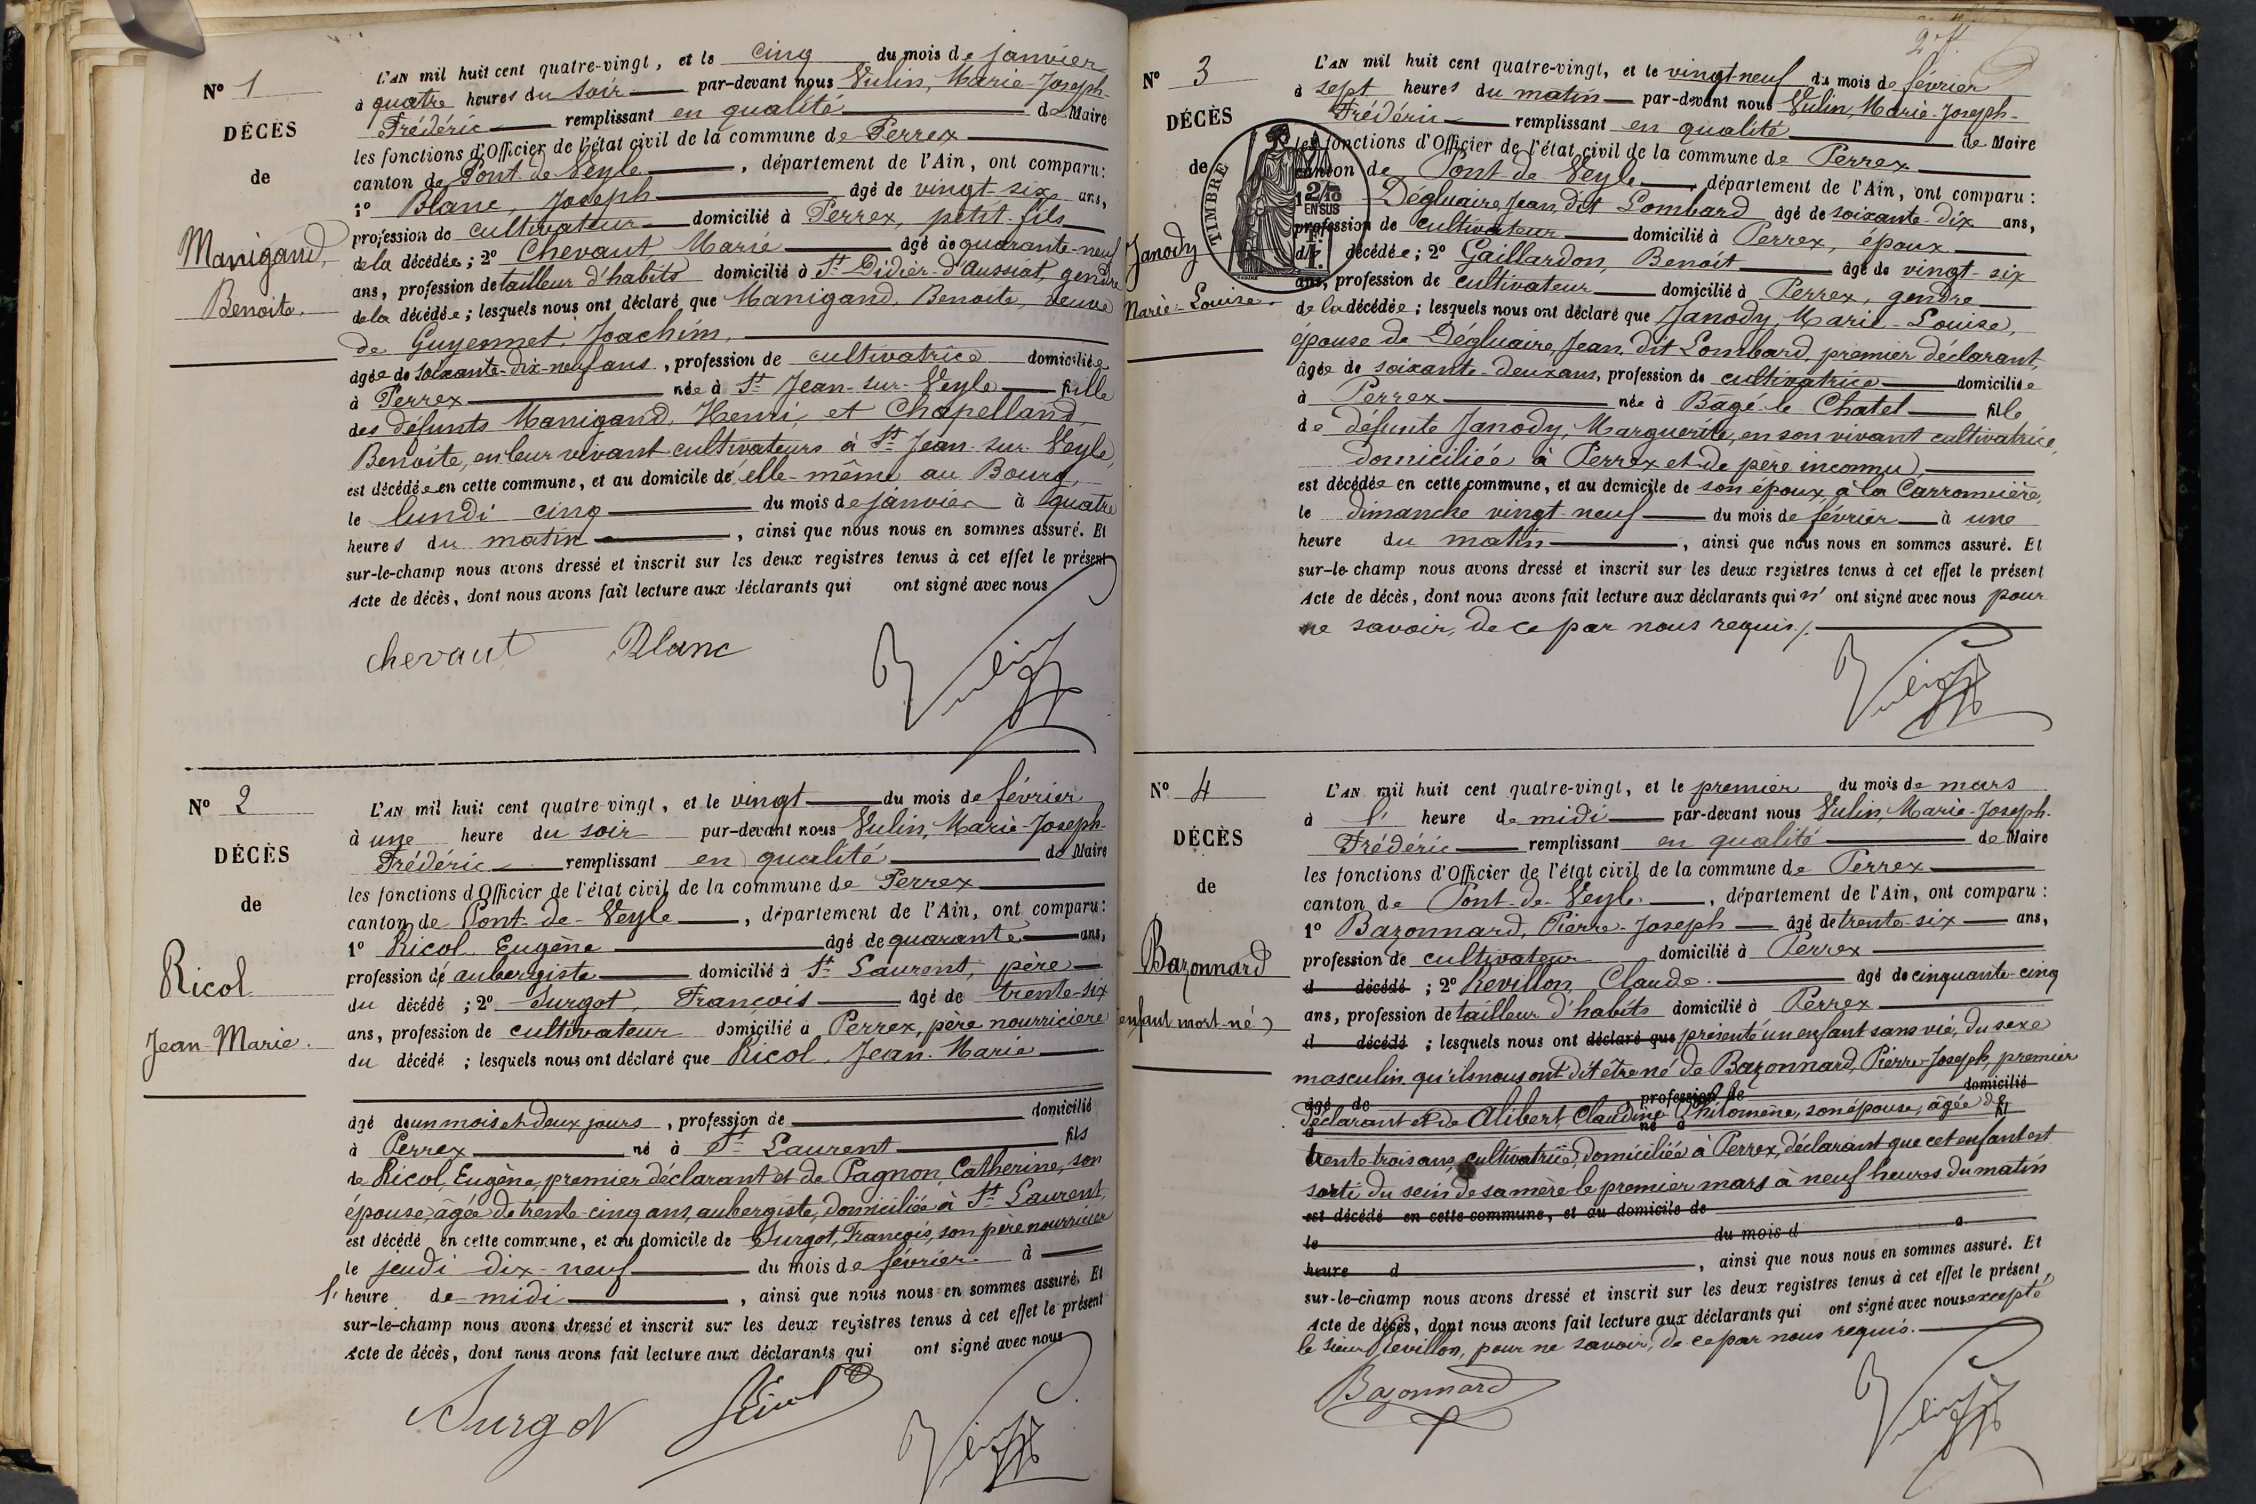 N° 1
DÉCÈS
de
Manigand,
Benoite.
L'AN mil huit cent quatre-vingt, et le cinq du mois de janvier
à quatre heures du soir par-devant nous Vulin, Marie-Joseph-
Frédéric remplissant en qualité de Maire
les fonctions d'Officier de l'état civil de la commune de Perrex
canton de Pont-de-Veyle, département de l'Ain, ont comparu:
1° Blanc, Joseph âgé de vingt-six ans,
profession de cultivateur domicilié à Perrex, petit-fils
de la décédée; 2° Chevaut Marie âgé de quarante-neuf
ans, profession de tailleur d'habits domicilié à St Didier-d'Aussiat, gendre
de la décédée; lesquels nous ont déclaré que Manigand, Benoite, veuve
de Guyennet, Joachim,
âgée de soixante-dix-neuf ans, profession de cultivatrice domiciliée
à Perrex née à St Jean-sur-Veyle fille
des défunts Manigand, Henri, et Chapelland,
Benoite, en leur vivant cultivateurs à St Jean-sur-Veyle,
est décédée en cette commune, et au domicile de elle-même au Bourg,
le lundi cinq du mois de janvier à quatre
heures du matin, ainsi que nous nous en sommes assuré. Et
sur-le-champ nous avons dressé et inscrit sur les deux registres tenus à cet effet le présent
Acte de décès, dont nous avons fait lecture aux déclarants qui ont signé avec nous
chevaut Blanc Vulin
N° 2
DÉCÈS
de
Ricol
Jean-Marie.
L'AN mil huit cent quatre-vingt, et le vingt du mois de février
à une heure du soir par-devant nous Vulin, Marie-Joseph-
Frédéric remplissant en qualité de Maire
les fonctions d'Officier de l'état civil de la commune de Perrex
canton de Pont-de-Veyle, département de l'Ain, ont comparu:
1° Ricol Eugène âgé de quarante ans,
profession de aubergiste domicilié à St Laurent, père
du décédé; 2° Surgot, François âgé de trente-six
ans, profession de cultivateur domicilié à Perrex, père nourriciere
du décédé; lesquels nous ont déclaré que Ricol, Jean-Marie
âgé de un mois et deux jours, profession de domicilié
à Perrex né à St Laurent fils
de Ricol, Eugène, premier déclarant et de Pagnon, Catherine, son
épouse, âgée de trente-cinq ans, aubergiste, domiciliée à St Laurent,
est décédé en cette commune, et au domicile de Surgot, François, son père nourricier
le jeudi dix-neuf du mois de février à
l' heure de midi, ainsi que nous nous en sommes assuré. Et
sur-le-champ nous avons dressé et inscrit sur les deux registres tenus à cet effet le présent
Acte de décès, dont nous avons fait lecture aux déclarants qui ont signé avec nous
Surgot Ricol Vulin
27.
N° 3
DÉCÈS
de
Janody
Marie-Louise.
TIMBRE
2/10
EN SUS
L'AN mil huit cent quatre-vingt, et le vingt-neuf du mois de février
à sept heures du matin par-devant nous Vulin, Marie-Joseph-
Frédéric remplissant en qualité de Maire
les fonctions d'Officier de l'état civil de la commune de Perrex
canton de Pont-de-Veyle, département de l'Ain, ont comparu:
1° Dégluaire, Jean, dit Lombard âgé de soixante-dix ans,
profession de cultivateur domicilié à Perrex, époux
d décédée; 2° Gaillardon, Benoit âgé de vingt-six
ans, profession de cultivateur domicilié à Perrex, gendre
de la décédée; lesquels nous ont déclaré que Janody, Marie-Louise,
épouse de Dégluaire, Jean, dit Lombard, premier déclarant,
âgée de soixante-deux ans, profession de cultivatrice domiciliée
à Perrex née à Bagé-le-Chatel fille
de défunte Janody, Marguerite, en son vivant cultivatrice,
domiciliée à Perrex et de père inconnu,
est décédée en cette commune, et au domicile de son époux à la Carronnière,
le dimanche vingt-neuf du mois de février à une
heure du matin, ainsi que nous nous en sommes assuré. Et
sur-le-champ nous avons dressé et inscrit sur les deux registres tenus à cet effet le présent
Acte de décès, dont nous avons fait lecture aux déclarants qui n' ont signé avec nous pour
ne savoir, de ce par nous requis.
Vulin
N° 4
DÉCÈS
de
Bazonnard
enfant mort-né
L'AN mil huit cent quatre-vingt, et le premier du mois de mars
à l' heure de midi par-devant nous Vulin, Marie-Joseph-
Frédéric remplissant en qualité de Maire
les fonctions d'Officier de l'état civil de la commune de Perrex
canton de Pont-de-Veyle, département de l'Ain, ont comparu:
1° Bazonnard, Pierre-Joseph âgé de trente-six ans,
profession de cultivateur domicilié à Perrex
d décédé; 2° Revillon, Claude âgé de cinquante-cinq
ans, profession de tailleur d'habits domicilié à Perrex
d décédé; lesquels nous ont déclaré que présenté un enfant sans vie, du sexe
masculin qu'ils nous ont dit être né de Bazonnard, Pierre-Joseph, premier
âgé de profession de domicilié
déclarant et de Alibert, Claudine Philomène, son épouse, âgée de
à né à fil
trente trois ans, cultivatrice, domiciliée à Perrex, déclarant que cet enfant est
sorti du sein de sa mère le premier mars à neuf heures du matin
est décédé en cette commune, et au domicile de
le du mois d à
heure d, ainsi que nous nous en sommes assuré. Et
sur-le-champ nous avons dressé et inscrit sur les deux registres tenus à cet effet le présent
Acte de décès, dont nous avons fait lecture aux déclarants qui ont signé avec nous excepté
le sieur Revillon, pour ne savoir, de ce par nous requis.
Bazonnard Vulin